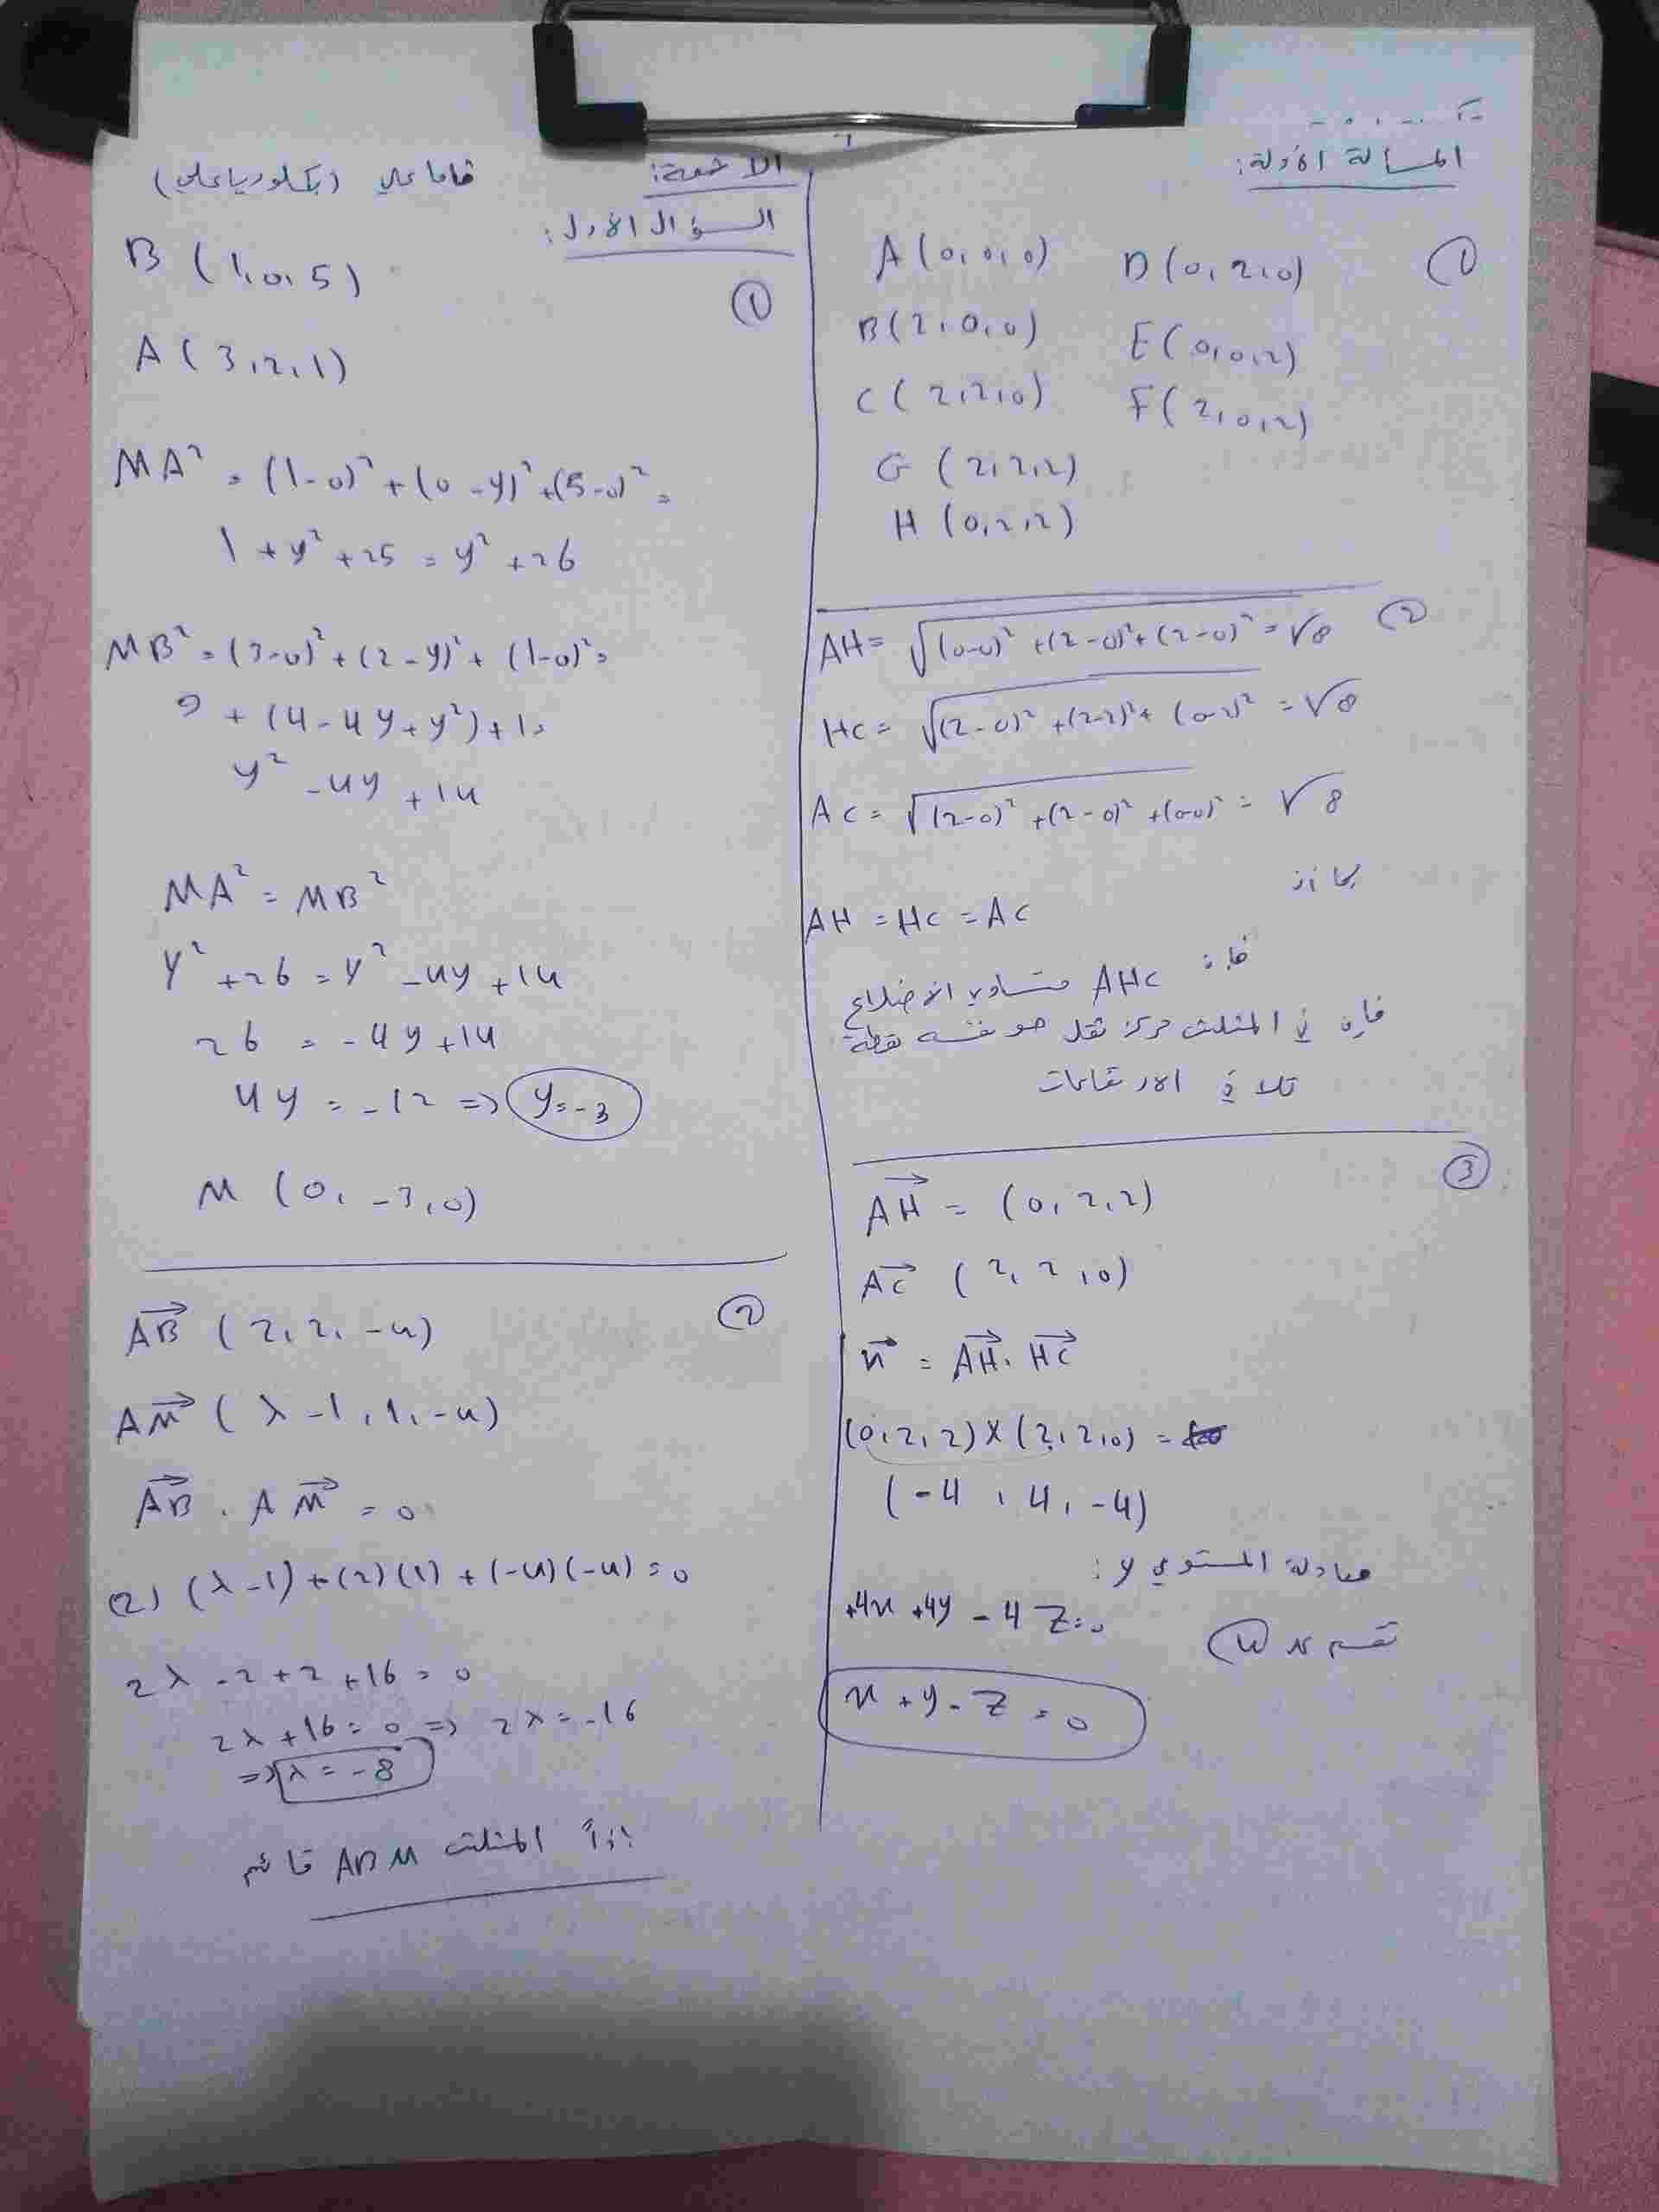 المسألة الأولة:
①
A (0,0,0)  D (0,2,0)
B (2,0,0)  E (0,0,2)
C (2,2,0)  F (2,0,2)
G (2,2,2)
H (0,2,2)
②
AH = √(0-0)² + (2-0)² + (2-0)² = √8
HC = √(2-0)² + (2-2)² + (0-2)² = √8
AC = √(2-0)² + (2-0)² + (0-0)² = √8
بما أن
AH = HC = AC
فإن AHC متساوي الأضلاع
فإن في المثلث مركز ثقل هو نفسه نقطة
تلاقي الارتفاعات
③
AH→ = (0,2,2)
AC→ (2,2,0)
n→ = AH→ . HC→
(0,2,2) X (2,2,0) =
(-4, 4, -4)
معادلة المستوي y:
+4x +4y - 4Z = 0
نقسم على (4)
x + y - Z = 0
السؤال الأول:
①
B (1,0,5)
A (3,2,1)
MA² = (1-0)² + (0-y)² + (5-0)² =
1 + y² + 25 = y² + 26
MB² = (3-0)² + (2-y)² + (1-0)² =
9 + (4 - 4y + y²) + 1 =
y² - 4y + 14
MA² = MB²
y² + 26 = y² - 4y + 14
26 = -4y + 14
4y = -12 => y = -3
M (0, -3, 0)
②
AB→ (2, 2, -4)
AM→ (λ-1, 1, -4)
AB→ . AM→ = 0
(2) (λ-1) + (2)(1) + (-4)(-4) = 0
2λ - 2 + 2 + 16 = 0
2λ + 16 = 0 => 2λ = -16
=> λ = -8
إذاً المثلث ABM قائم